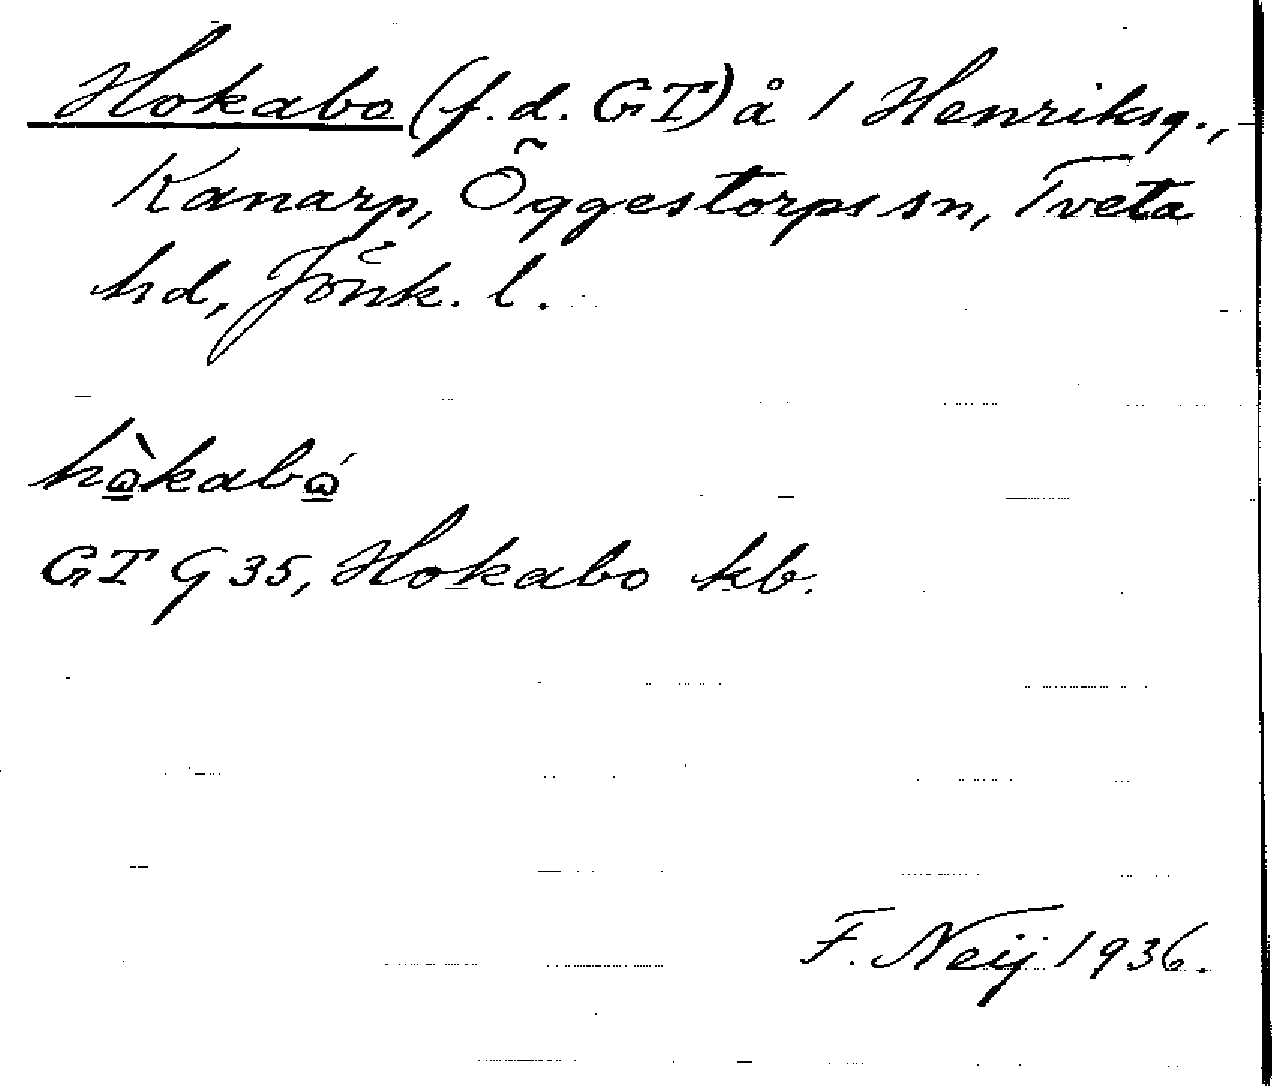 Hokabo (f.d. GT) å 1 Henriksg.,
Kanarp, Öggestorps sn, Tveta
hd, Jönk. l.
hò̲kabó̲
GT G 35, Hokabo kb.
F. Neij 1936.